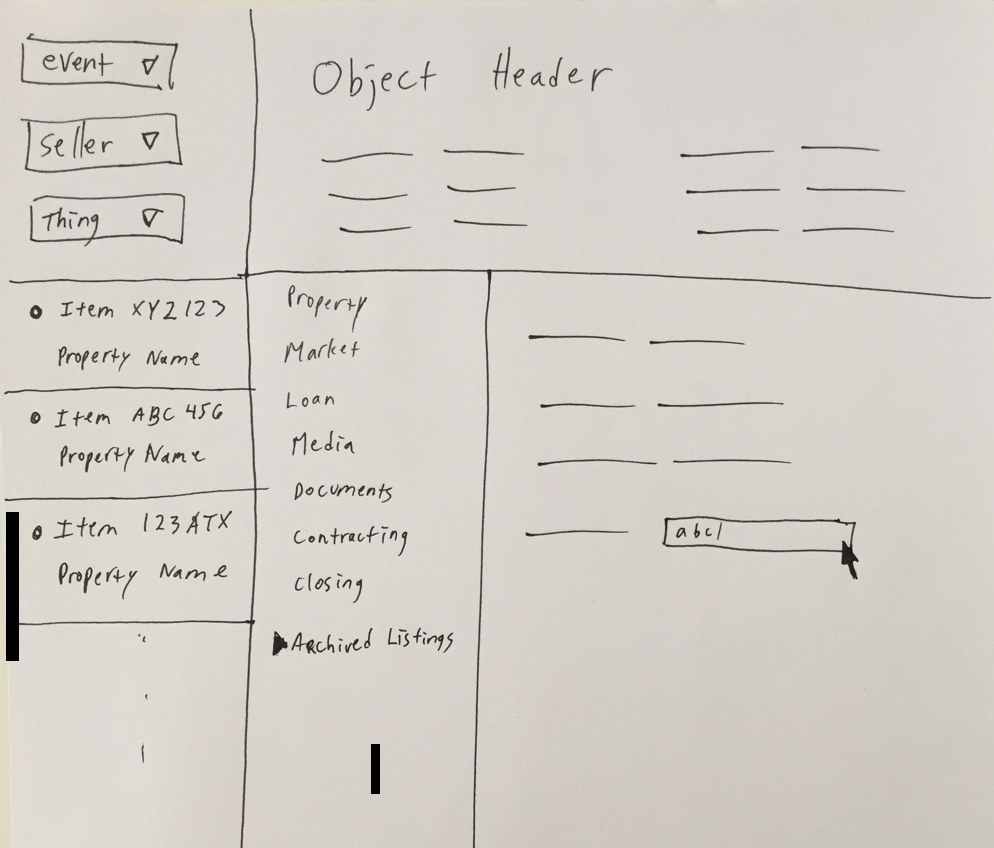 event
Seller
Thing
Object Header
Item XYZ123
Property Name
Item ABC 456
Property Name
Item 123ATX
Property Name
Property
Market
Loan
Media
Documents
Contracting
Closing
Archived Listings
abc|